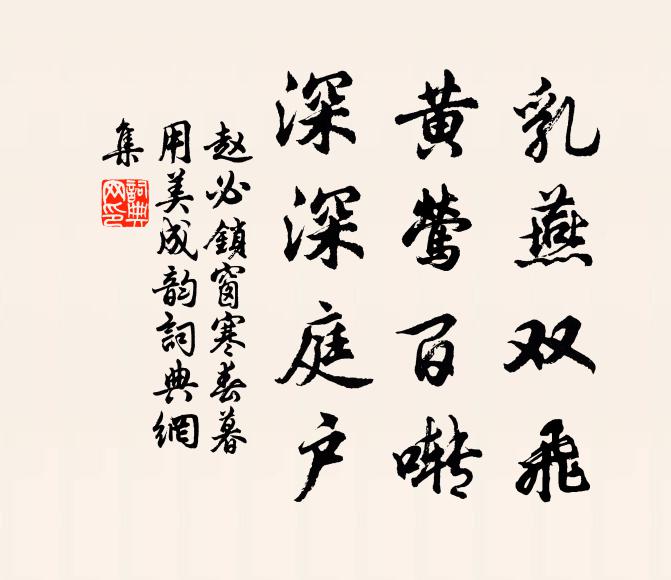 乳燕双飛
黄莺百啭
深深庭户
赵必鎖窗寒春暮
用美成韵詞典網
集
詞典
网印